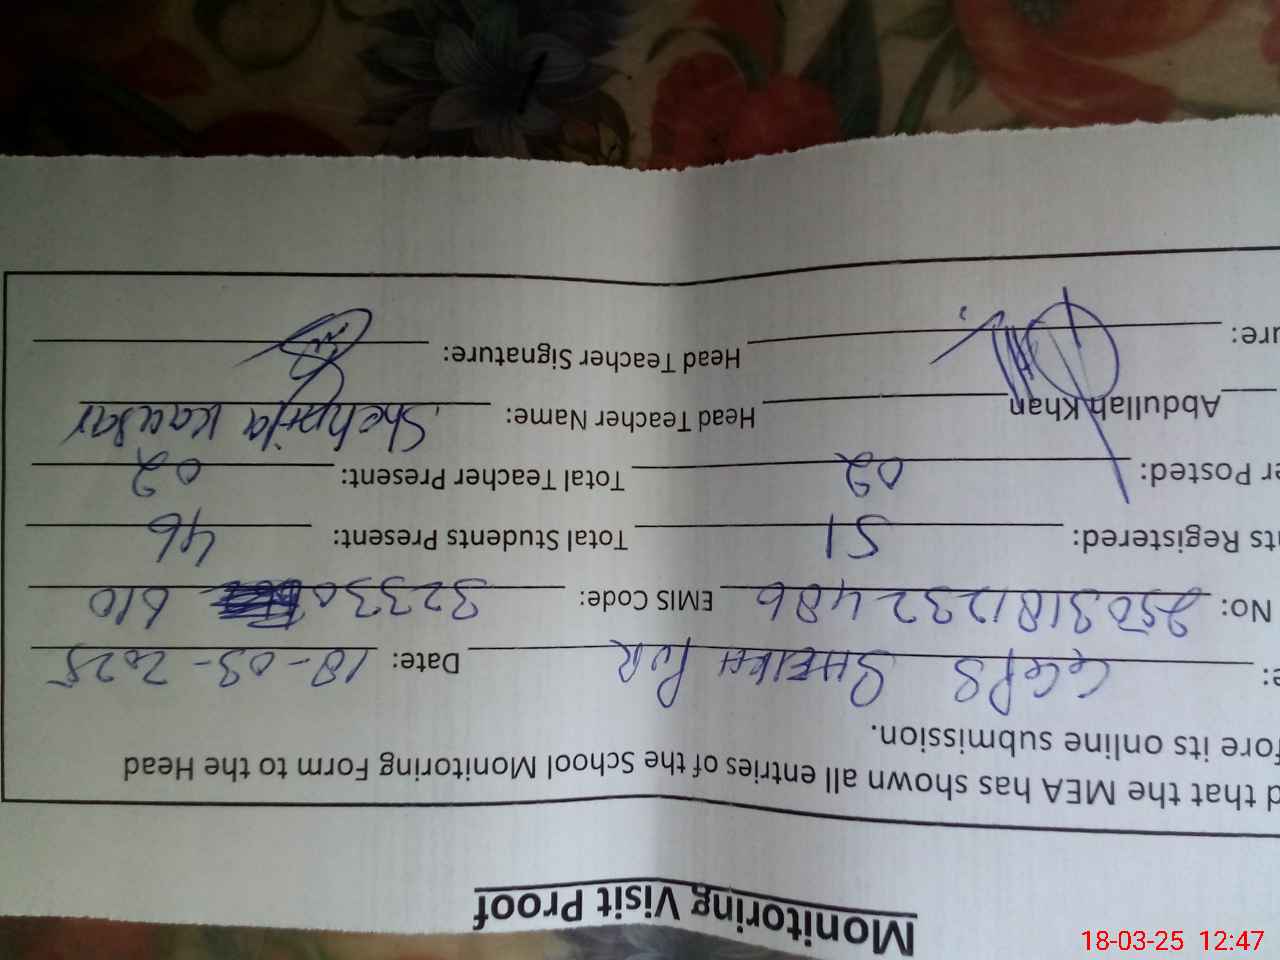 Monitoring Visit Proof
d that the MEA has shown all entries of the School Monitoring Form to the Head
fore its online submission.
e: GGPS SHEIKH PUR Date: 18-03-2025
No: 2503181232486 EMIS Code: 32330 610
ts Registered: 51 Total Students Present: 46
er Posted: 02 Total Teacher Present: 02
Abdullah Khan Head Teacher Name: Shehnila Kausar
ure: Head Teacher Signature:
18-03-25 12:47